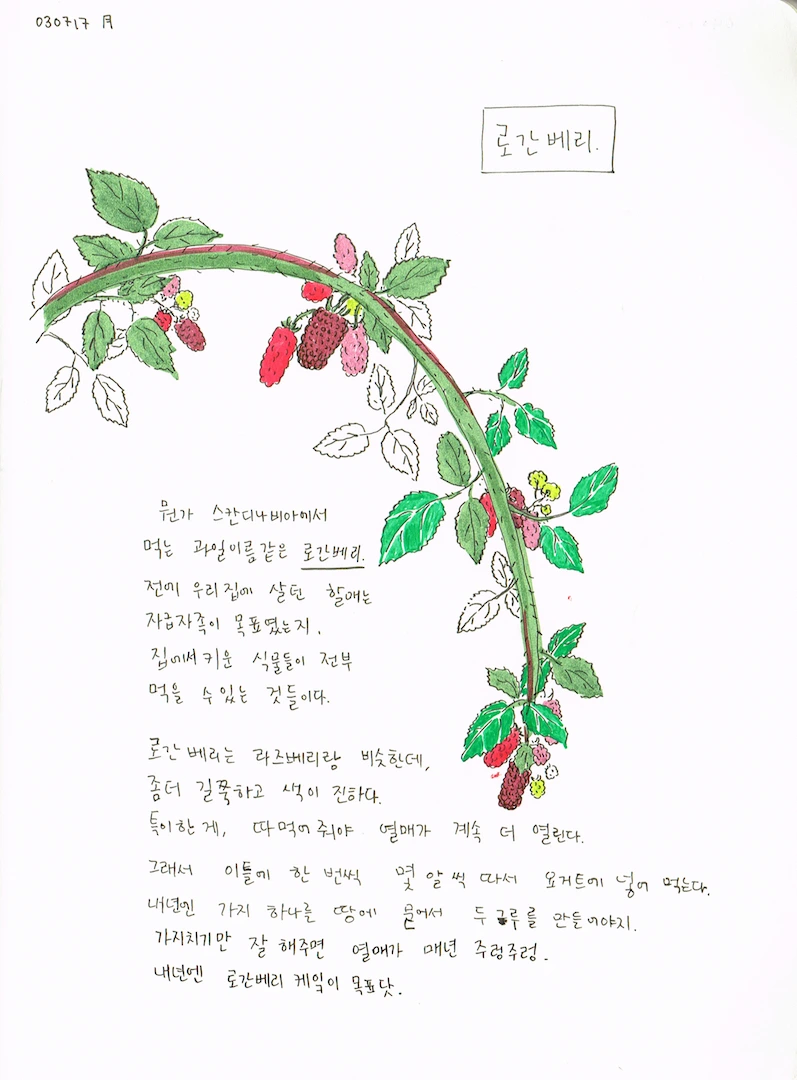 030717 月
로간베리.
뭔가 스칸디나비아에서
먹는 과일이름같은 로간베리.
전에 우리집에 살던 할매는
자급자족이 목표였는지,
집에서 키운 식물들이 전부
먹을 수 있는 것들이다.
로간베리는 라즈베리랑 비슷한데,
좀더 길쭉하고 색이 진하다.
특이한 게, 따먹어줘야 열매가 계속 더 열린다.
그래서 이틀에 한 번씩 몇 알씩 따서 요거트에 넣어 먹는다.
내년엔 가지 하나를 땅에 묻어서 두 그루를 만들어야지.
가지치기만 잘 해주면 열매가 매년 주렁주렁.
내년엔 로간베리 케잌이 목표닷.